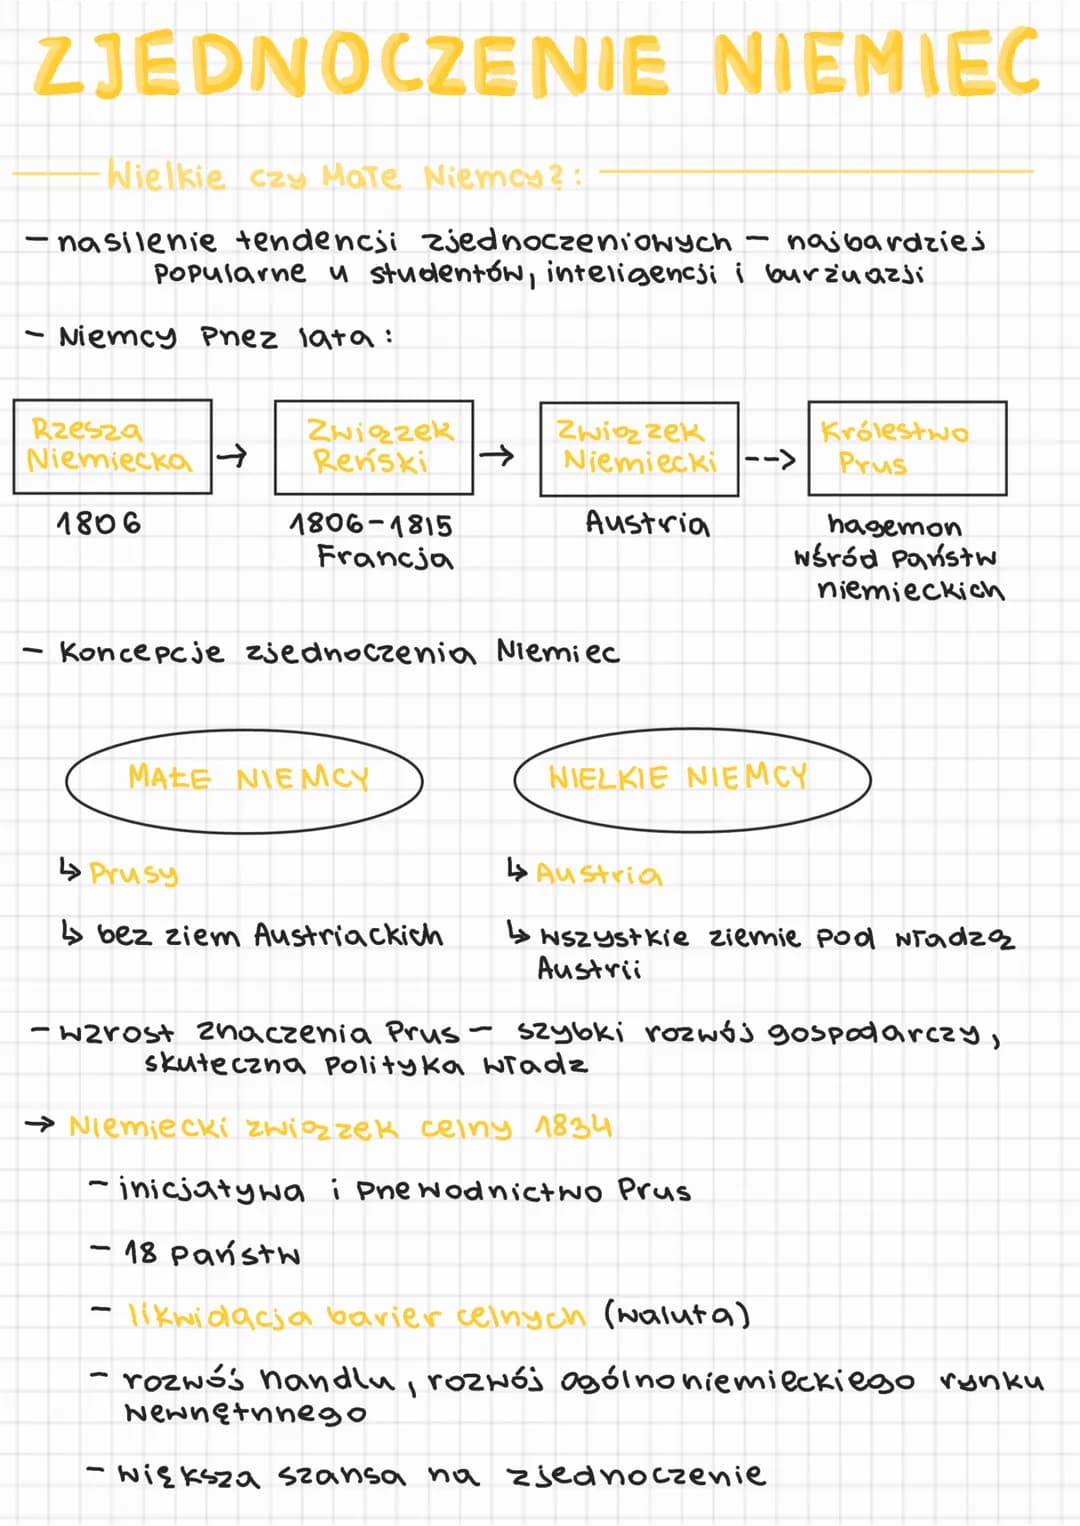 ZJEDNOCZENIE NIEMIEC
Wielkie czy Małe Niemcy?:
- nasilenie tendencji zjednoczeniowych - najbardziej
popularne u studentów, inteligencji i burżuazji
- Niemcy przez lata:
Rzesza
Niemiecka
→
Związek
Reński
→
Związek
Niemiecki
-->
Królestwo
Prus
1806
1806-1815
Francja
Austria
hagemon
wśród państw
niemieckich
- Koncepcje zjednoczenia Niemiec
MAŁE NIEMCY
WIELKIE NIEMCY
↳ Prusy
↳ Austria
↳ bez ziem Austriackich
↳ wszystkie ziemie pod władzą
Austrii
- wzrost znaczenia Prus - szybki rozwój gospodarczy,
skuteczna polityka władz
→ Niemiecki związek celny 1834
- inicjatywa i przewodnictwo Prus
- 18 państw
- likwidacja barier celnych (waluta)
- rozwój handlu, rozwój ogólnoniemieckiego rynku
wewnętrznego
- większa szansa na zjednoczenie